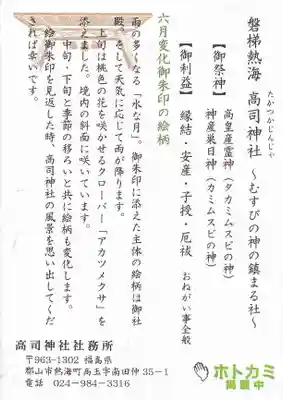 磐梯熱海 高司神社 ~むすびの神の鎮まる社~
たかつかじんじゃ
【御祭神】
高皇産霊神(タカミムスビの神)
神産巣日神(カミムスビの神)
【御利益】 縁結・安産・子授・厄祓 おねがい事全般
六月変化御朱印の絵柄
雨の多くなる「水な月」。御朱印に添えた主体の絵柄は御社
殿。そして天気に応じて雨が降ります。
上旬は桃色の花を咲かせるクローバー「アカツメクサ」を
添えました。境内の斜面に咲いています。
中旬・下旬と季節の移ろいと共に絵柄も変化します。
絵御朱印を見返した時、高司神社の風景を思い出してくだ
されば幸いです。
高司神社社務所
〒963-1302 福島県
郡山市熱海町高玉字南田仲35-1
電話 024-984-3316
ホトカミ
掲載中